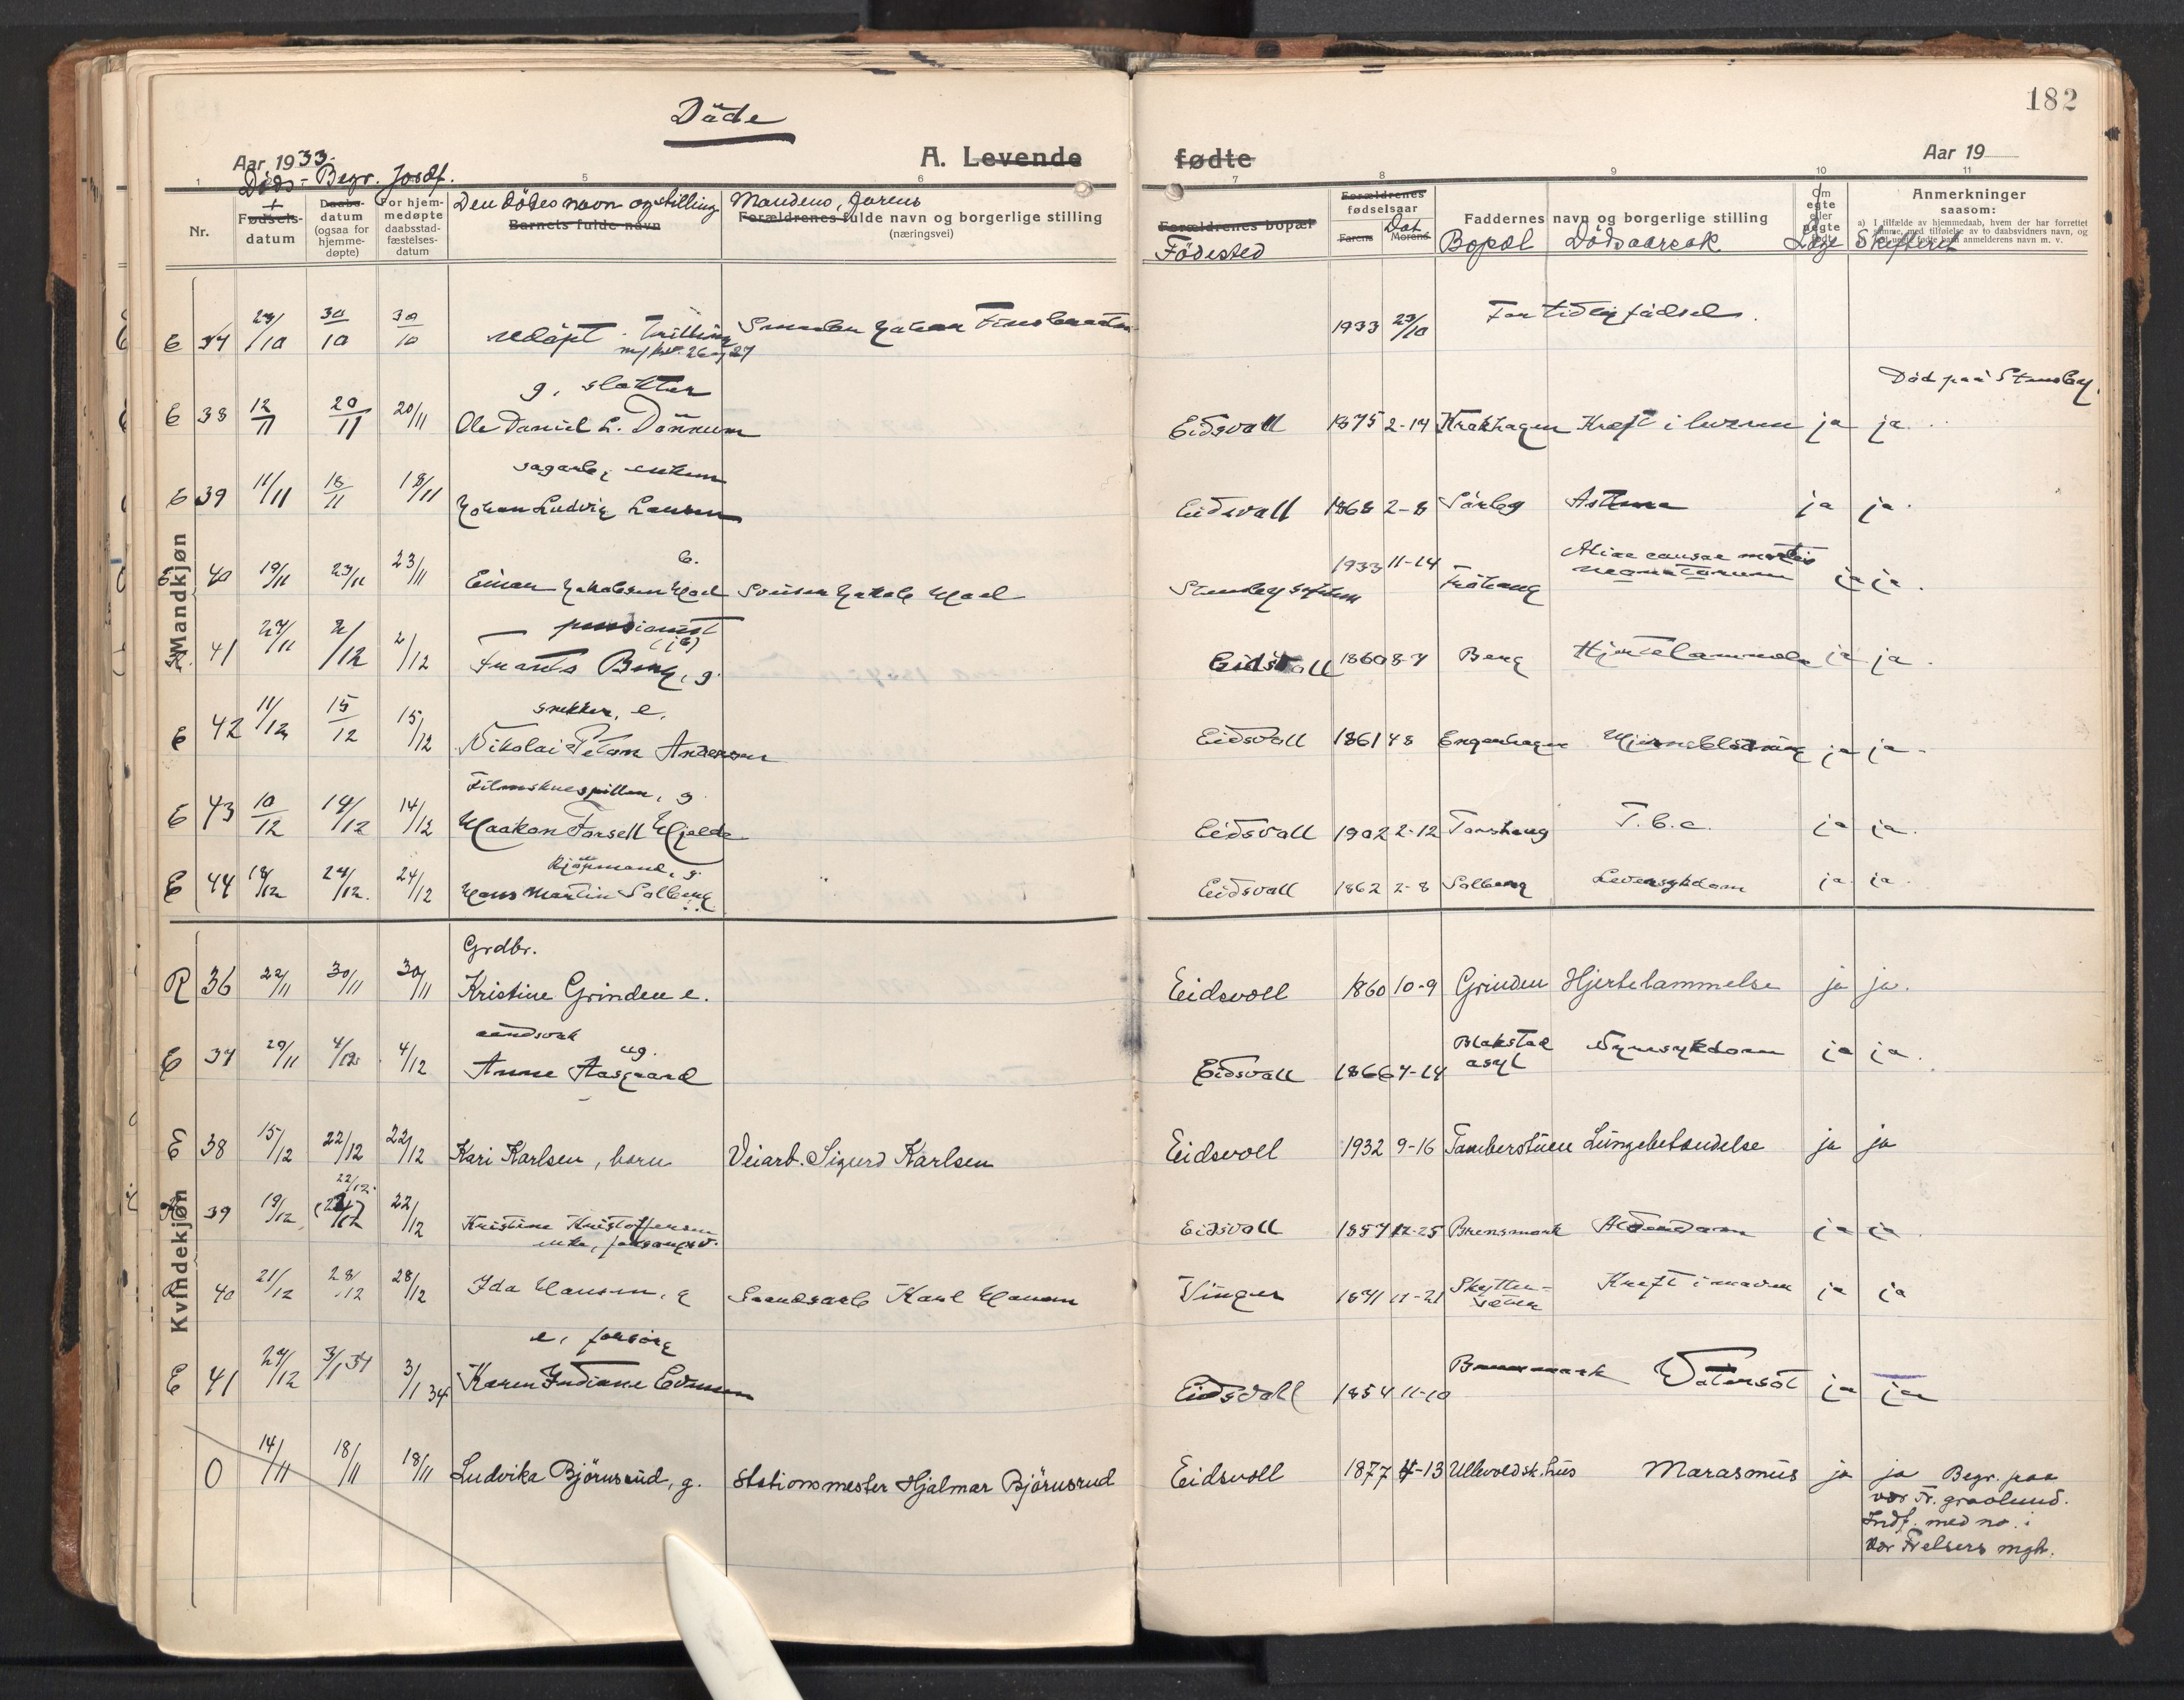 182
Døde
Aar 1933.
A. Levende fødte
Aar 19
Døds- Begr. Jordf.
1 5 6 7 8 9 10 11
Nr.
+ Fødsels-datum
Daabs-datum (ogsaa for hjemme-døpte)
For hjem-medøpte daabsstad-fæstelses-datum
Den dødes navn og stilling
Barnets fulde navn
Mandens, farens
Forældrenes fulde navn og borgerlige stilling
(næringsvei)
Forældrenes bopæl
Fødested
Forældrenes fødselsaar
Farens Morens
Dat.
Faddernes navn og borgerlige stilling
Bopæl Dødsaarsak
Om egte eller uegte født
Læge
Anmerkninger
saasom:
Skifteret
Mandkjøn
E 37 29/10 30/10 30/10 Udøpt trilling 1933 29/10 For tidlig fødsel.
g. slakter Død paa Stensby.
E 38 12/11 20/11 20/11 Ole Daniel L. Dønnum Eidsvoll 1875 2-14 Krakhagen Kræft i leveren ja ja.
sagarb., enkem
E 39 11/11 18/11 18/11 Johan Ludvig Larsen Eidsvoll 1868 2-8 Sørby Astma ja ja.
E 40 19/11 23/11 23/11 Einar Jakobsen Hoel b. Jakob Hoel Stensby sykehus 1933 11-14 Aliae causae mortis neonatorum ja ja.
pensionist
R. 41 27/11 2/12 2/12 Frants Berg, g. Eidsvoll 1860 8-7 Berg Hjertelammelse ja ja.
snekker, e.
E 42 11/12 15/12 15/12 Nikolai Petter Andersen Eidsvoll 1861 4-8 Engenhagen Hjerneblødning ja ja.
Filmskuespiller, g.
E 43 10/12 14/12 14/12 Haakon Forsell Hjelde Eidsvoll 1902 2-12 Torshaug T.b.c. ja ja.
Kjøpmand, g.
E 44 18/12 24/12. 24/12 Hans Martin Solberg Eidsvoll 1862 2-8 Solberg Leversykdom ja ja.
Kvindekjøn
Grdbr.
R 36 22/11 30/11 30/11 Kristine Grinden e. Eidsvoll 1860 10-9 Grinden Hjertelammelse ja ja.
aandsvak
E 37 29/11 4/12 4/12 Anne Aasgaard ug. Eidsvoll 1866 7-14 Blakstad asyl Nyresykdom ja ja.
E 38 15/12 22/12 22/12 Kari Karlsen, barn Veiarb. Sigurd Karlsen Eidsvoll 1932 9-16 Tamberstuen Lungebetændelse ja ja
22/12.
R 39 19/12 22/12 Kristine Kristoffersen
enke, forsørgesv.
Eidsvoll 1857 12-25 Brensmork Alderdom ja ja.
R 40 21/12 28/12 28/12 Ida Hansen, g Karl Hansen Vinger 1871 11-21 Skytter-sæter Kræft i maven ja ja
e, forsørg
E 41 27/12 3/1 34 3/1 34 Karen Indiane Evensen Eidsvoll 1854 11-10 Brensmork Vatersot ja ja
0 14/11 18/11 18/11 Ludvika Bjørnsrud, g. Stationsmester Hjalmar Bjørnsrud Eidsvoll 1877 4-13 Ullevold sk.hus Marasmus ja ja Begr. paa
vor Fr. gravlund.
Indf. med no. i
Vor Frelsers mgh.